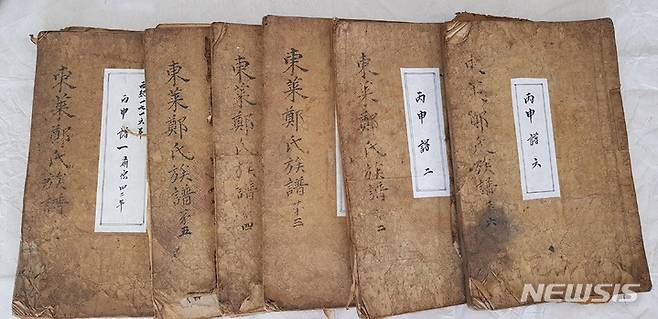 東萊鄭氏族譜
西紀一七一六年
丙申譜一 肅宗四二年
東萊鄭氏族譜 五
東萊鄭氏族譜 四
東萊鄭氏族譜 三
東萊鄭氏族譜 二
丙申譜二
鄭氏族譜 六
丙申譜六
NEWSIS